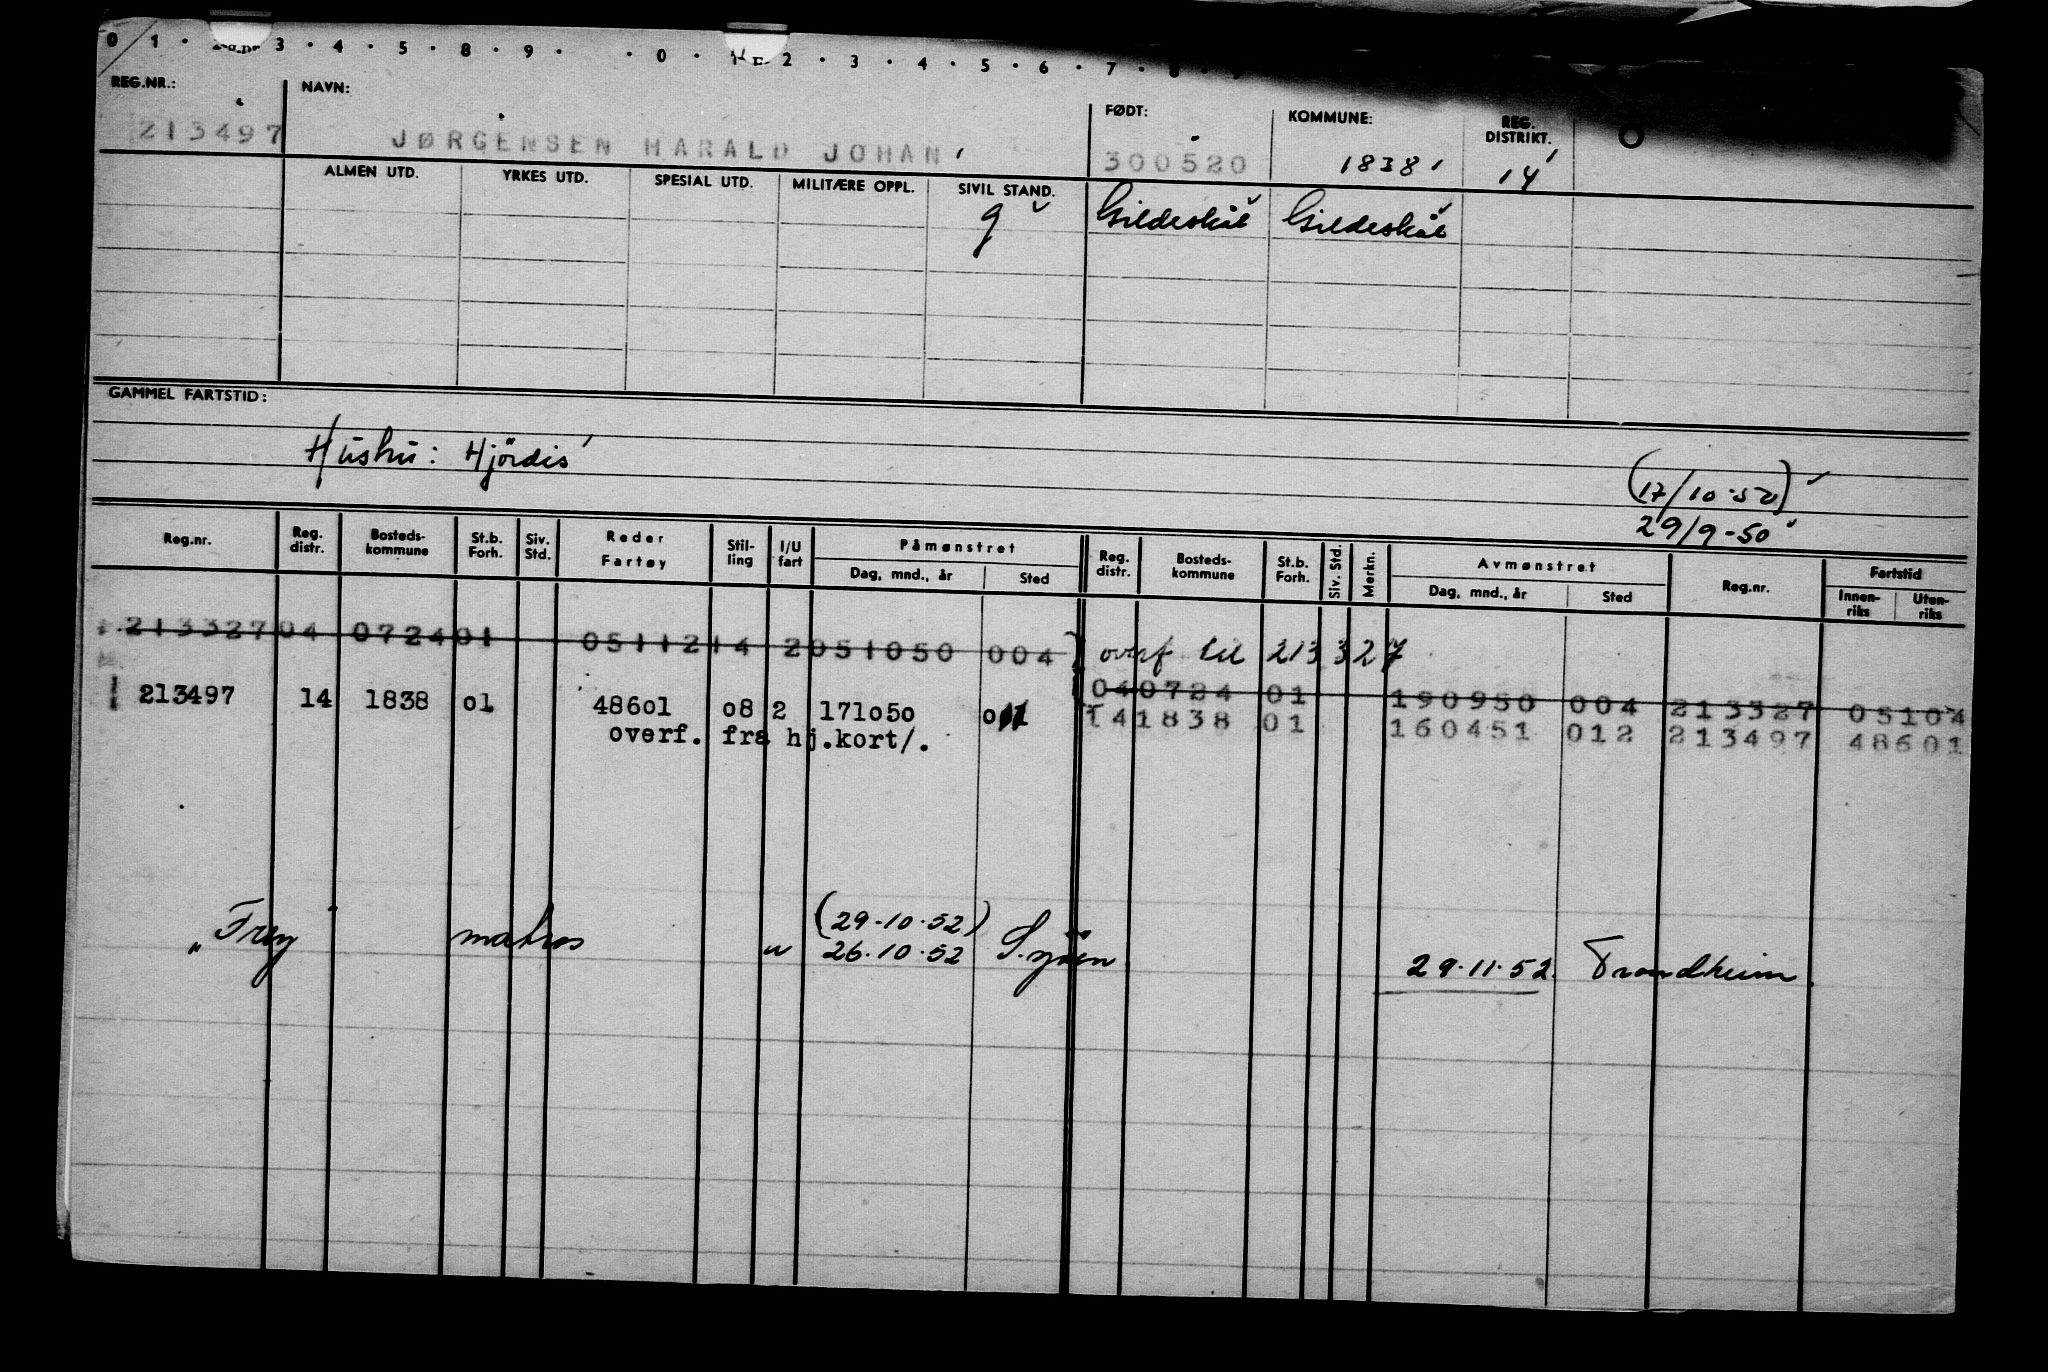 0 1 · 3 · 4 · 5 · 8 · 9 · · 0 · 2 · 3 · 4 · 5 · 6 · 7 · 8 ·
REG.NR.: NAVN: FØDT: KOMMUNE: REG. DISTRIKT.
213497 JØRGENSEN HARALD JOHAN 300520 1838 14
ALMEN UTD. YRKES UTD. SPESIAL UTD. MILITÆRE OPPL. SIVIL STAND.
g Gildeskål Gildeskål
GAMMEL FARTSTID:
Hustru: Hjördis
(17/10-50)
29/9-50
Reg.nr. Reg. distr. Bosteds-kommune St.b. Forh. Siv. Std. Reder Fartøy Stil-ling I/U fart Påmønstret Dag, mnd., år Sted Reg. distr. Bosteds-kommune St.b. Forh. Siv. Std. Merkn. Avmønstret Dag, mnd., år Sted Reg.nr. Fartstid Innen-riks Uten-riks
213327 04 0724 01 0511214 2 051050 004 overf til 213327
040724 01 190950 004 213327 05104
213497 14 1838 01 48601 08 2 171050 141838 01 160451 012 213497 48601
overf. fra hj.kort/.
(29-10-52)
"Frey matros u 26.10.52 S.sjöen 29.11.52. Trondheim